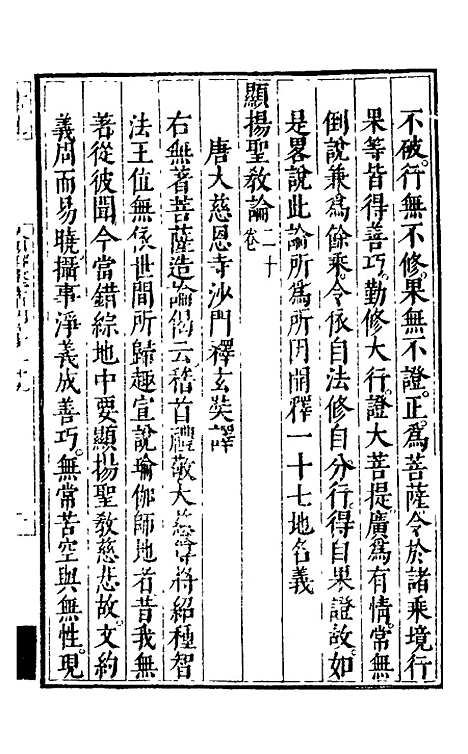 不破行無不修果無不證正為菩薩令於諸乘境行
果等皆得善巧勤修大行證大菩提廣為有情常無
倒說兼為餘乘令依自法修自分行得自果證故如
是畧說此論所為所因開釋一十七地名義
顯揚聖教論二十卷
唐大慈恩寺沙門釋玄奘譯
右無著菩薩造論偈云稽首禮敬大慈尊將紹種智
法王位無依世間所歸趣宣說瑜伽師地者昔我無
著從彼聞今當錯綜地中要顯揚聖教慈悲故文約
義周而易曉攝事淨義成善巧無常苦空與無性現